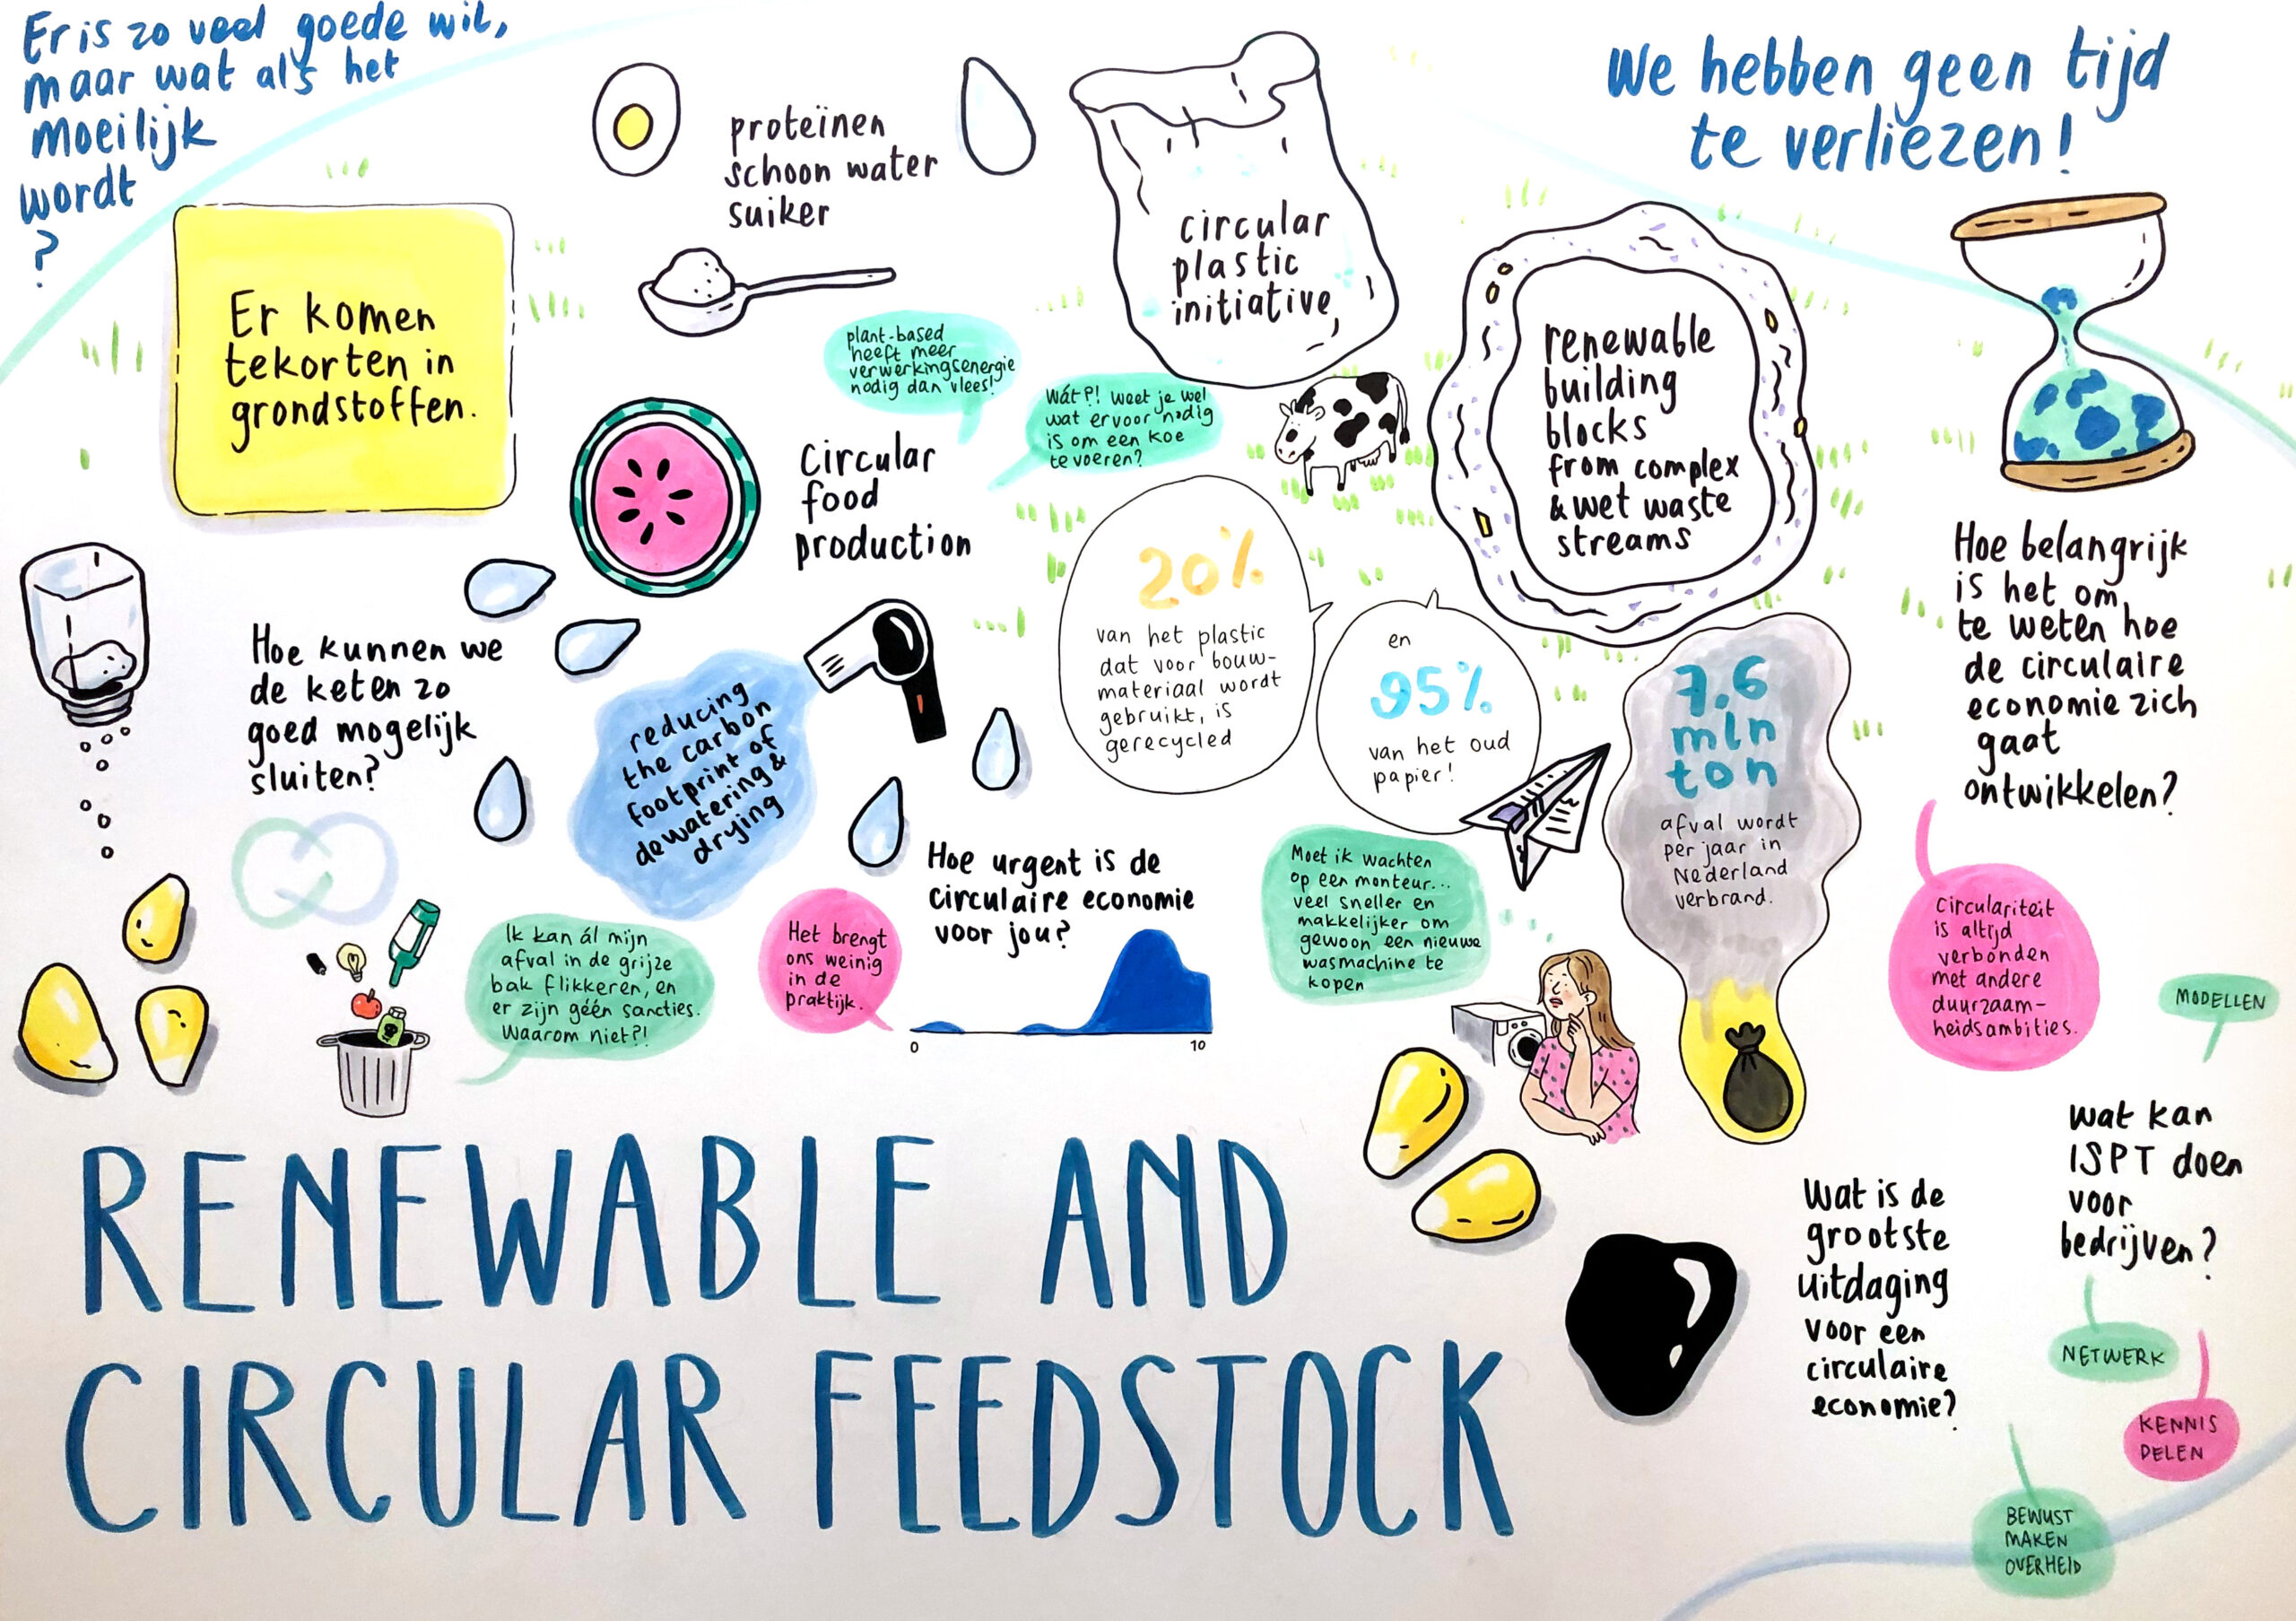 Er is zo veel goede wil,
maar wat als het
moeilijk
wordt
?
We hebben geen tijd
te verliezen!
proteïnen
schoon water
suiker
circular
plastic
initiative
Er komen
tekorten in
grondstoffen.
plant-based
heeft meer
verwerkingsenergie
nodig dan vlees!
Wát?! Weet je wel
wat ervoor nodig
is om een koe
te voeren?
renewable
building
blocks
from complex
& wet waste
streams
Circular
food
production
20%
van het plastic
dat voor bouw-
materiaal wordt
gebruikt, is
gerecycled
en
95%
van het oud
papier!
7.6
mln
ton
afval wordt
per jaar in
Nederland
verbrand.
Hoe belangrijk
is het om
te weten hoe
de circulaire
economie zich
gaat
ontwikkelen?
Hoe kunnen we
de keten zo
goed mogelijk
sluiten?
reducing
the carbon
footprint of
dewatering &
drying
Hoe urgent is de
circulaire economie
voor jou?
0
10
Het brengt
ons weinig
in de
praktijk.
Ik kan ál mijn
afval in de grijze
bak flikkeren, en
er zijn géén sancties.
Waarom niet?!
Moet ik wachten
op een monteur...
veel sneller en
makkelijker om
gewoon een nieuwe
wasmachine te
kopen
Circulariteit
is altijd
verbonden
met andere
duurzaam-
heidsambities.
MODELLEN
Wat kan
ISPT doen
voor
bedrijven?
Wat is de
grootste
uitdaging
voor een
circulaire
economie?
NETWERK
KENNIS
DELEN
BEWUST
MAKEN
OVERHEID
RENEWABLE AND
CIRCULAR FEEDSTOCK